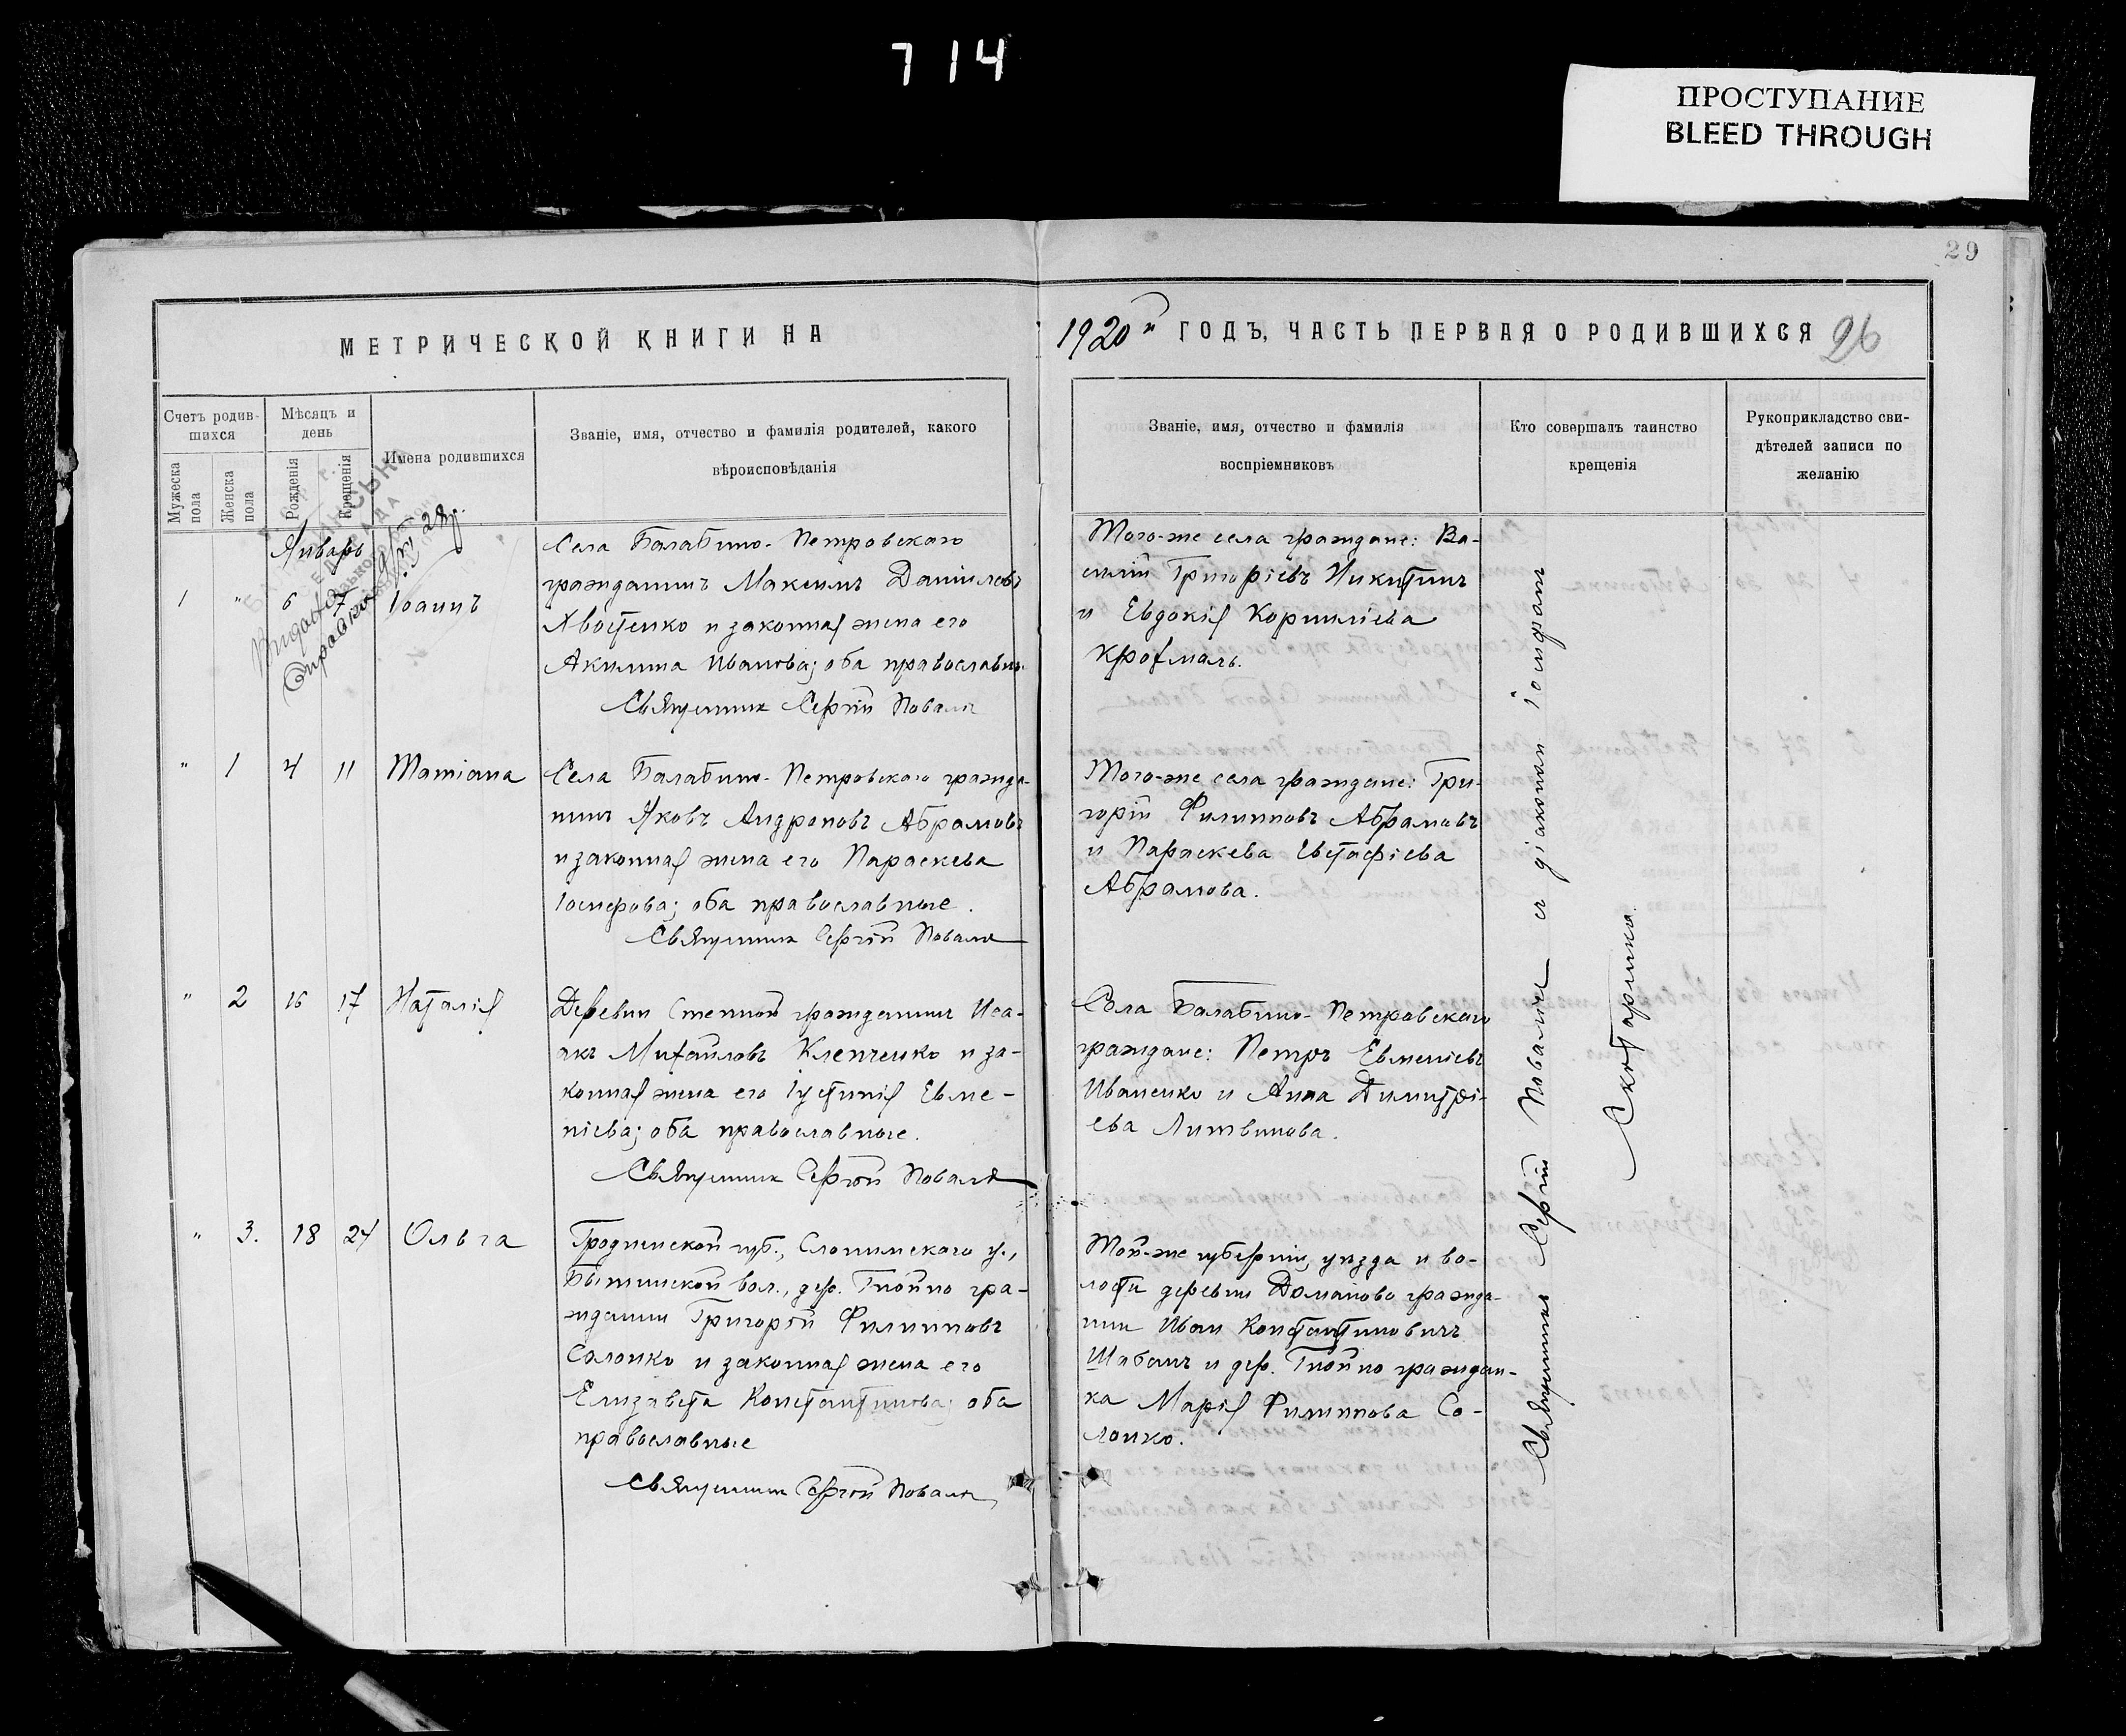 714
ПРОСТУПАНИЕ
BLEED THROUGH
29
МЕТРИЧЕСКОЙ КНИГИ НА
1920й ГОДЪ, ЧАСТЬ ПЕРВАЯ О РОДИВШИХСЯ 26
Счетъ родив-
шихся
Мужеска пола
Женска пола
Мѣсяцъ и
день
Рожденія
Крещенія
Имена родившихся
Званіе, имя, отчество и фамилія родителей, какого
вѣроисповѣданія
Званіе, имя, отчество и фамилія
воспріемниковъ
Кто совершалъ таинство
крещенія
Рукоприкладство сви-
дѣтелей записи по
желанію
Январь
1 " 6 7 Іоаннъ
Села Балабино-Петровского
гражданинъ Максимъ Даніиловъ
Хвостенко и законная жена его
Акилина Иванова; оба православны.
Священник Сергій Поваля
Того-же села граждане: Ва-
силій Григоріевъ Никитинъ
и Евдокія Корниліева
Крохмаль.
" 1 4 11 Татіана
Села Балабино-Петровского гражда-
нинъ Яковъ Андроновъ Абрамовъ
и законная жена его Параскева
Іосифова; оба православные.
Священник Сергій Поваля
Того-же села граждане: Гри-
горій Филипповъ Абрамовъ
и Параскева Евстафіева
Абрамова.
" 2 16 17 Наталія
Деревни Степной гражданинъ Иса-
акъ Михайловъ Клепченко и за-
конная жена его Іустинія Евме-
ніева; оба православные.
Священник Сергій Поваля
Села Балабино-Петровского
граждане: Петръ Евменіевъ
Иваненко и Анна Димитрі-
ева Литвинова.
" 3. 18 24 Ольга
Гродненской губ., Слонимского у.,
Бытинской вол., дер. Гнойно гра-
жданин Григорій Филипповъ
Солонко и законная жена его
Елизавета Константинова; оба
православные
Священник Сергій Поваля
Той-же губерніи, уезда и во-
лости деревни Доманово гражда-
нин Иван Константиновичъ
Шабанъ и дер. Гнойно граждан-
ка Марія Филиппова Со-
лонко.
Священник Сергій Поваля с діаконом Іосифом
Скотаренко.